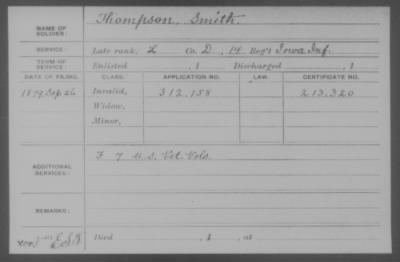 NAME OF SOLDIER: Thompson, Smith.
SERVICE: Late rank, L Co. D, 14 Reg't Iowa Inf.
TERM OF SERVICE: Enlisted , 1 Discharged , 1
DATE OF FILING. CLASS. APPLICATION NO. LAW. CERTIFICATE NO.
1879 Sep 26 Invalid, 312,158 213,320
Widow,
Minor,
ADDITIONAL SERVICES: F 7 U.S. Vet. Vols.
REMARKS:
Died , 1 , at